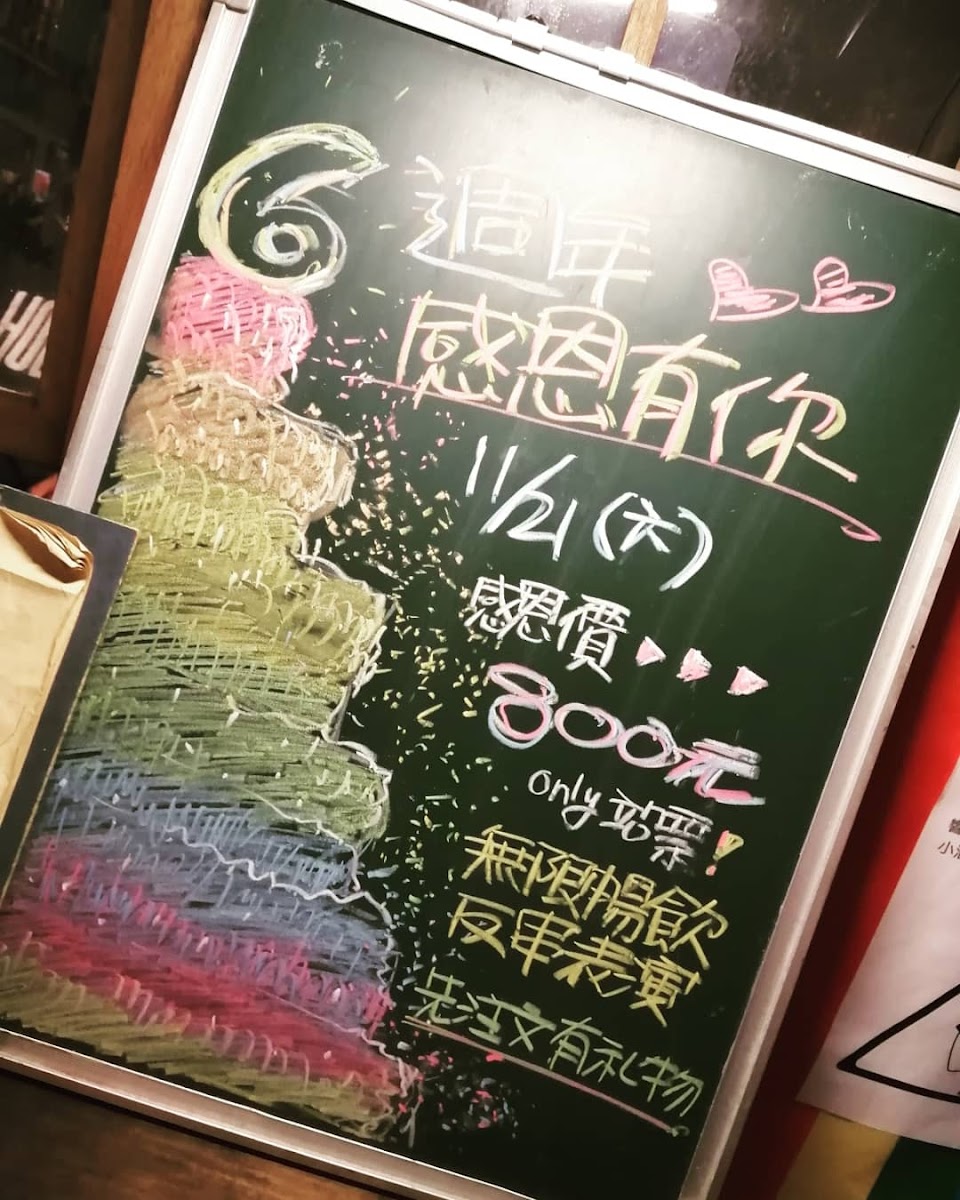 6 週年
感恩有你
11/21 (六)
感恩價
800元
only 站票!
無限暢飲
反串表演
先注文有礼物
HO
小